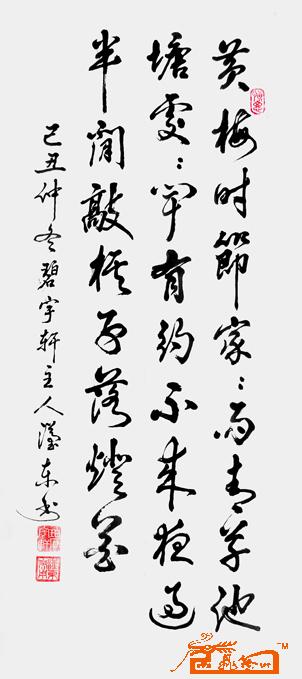 黄梅时節家々雨青草池
塘處々蛙有约不来夜过
半闲敲棋子落燈花
己丑仲冬碧宇轩主人东书
TM